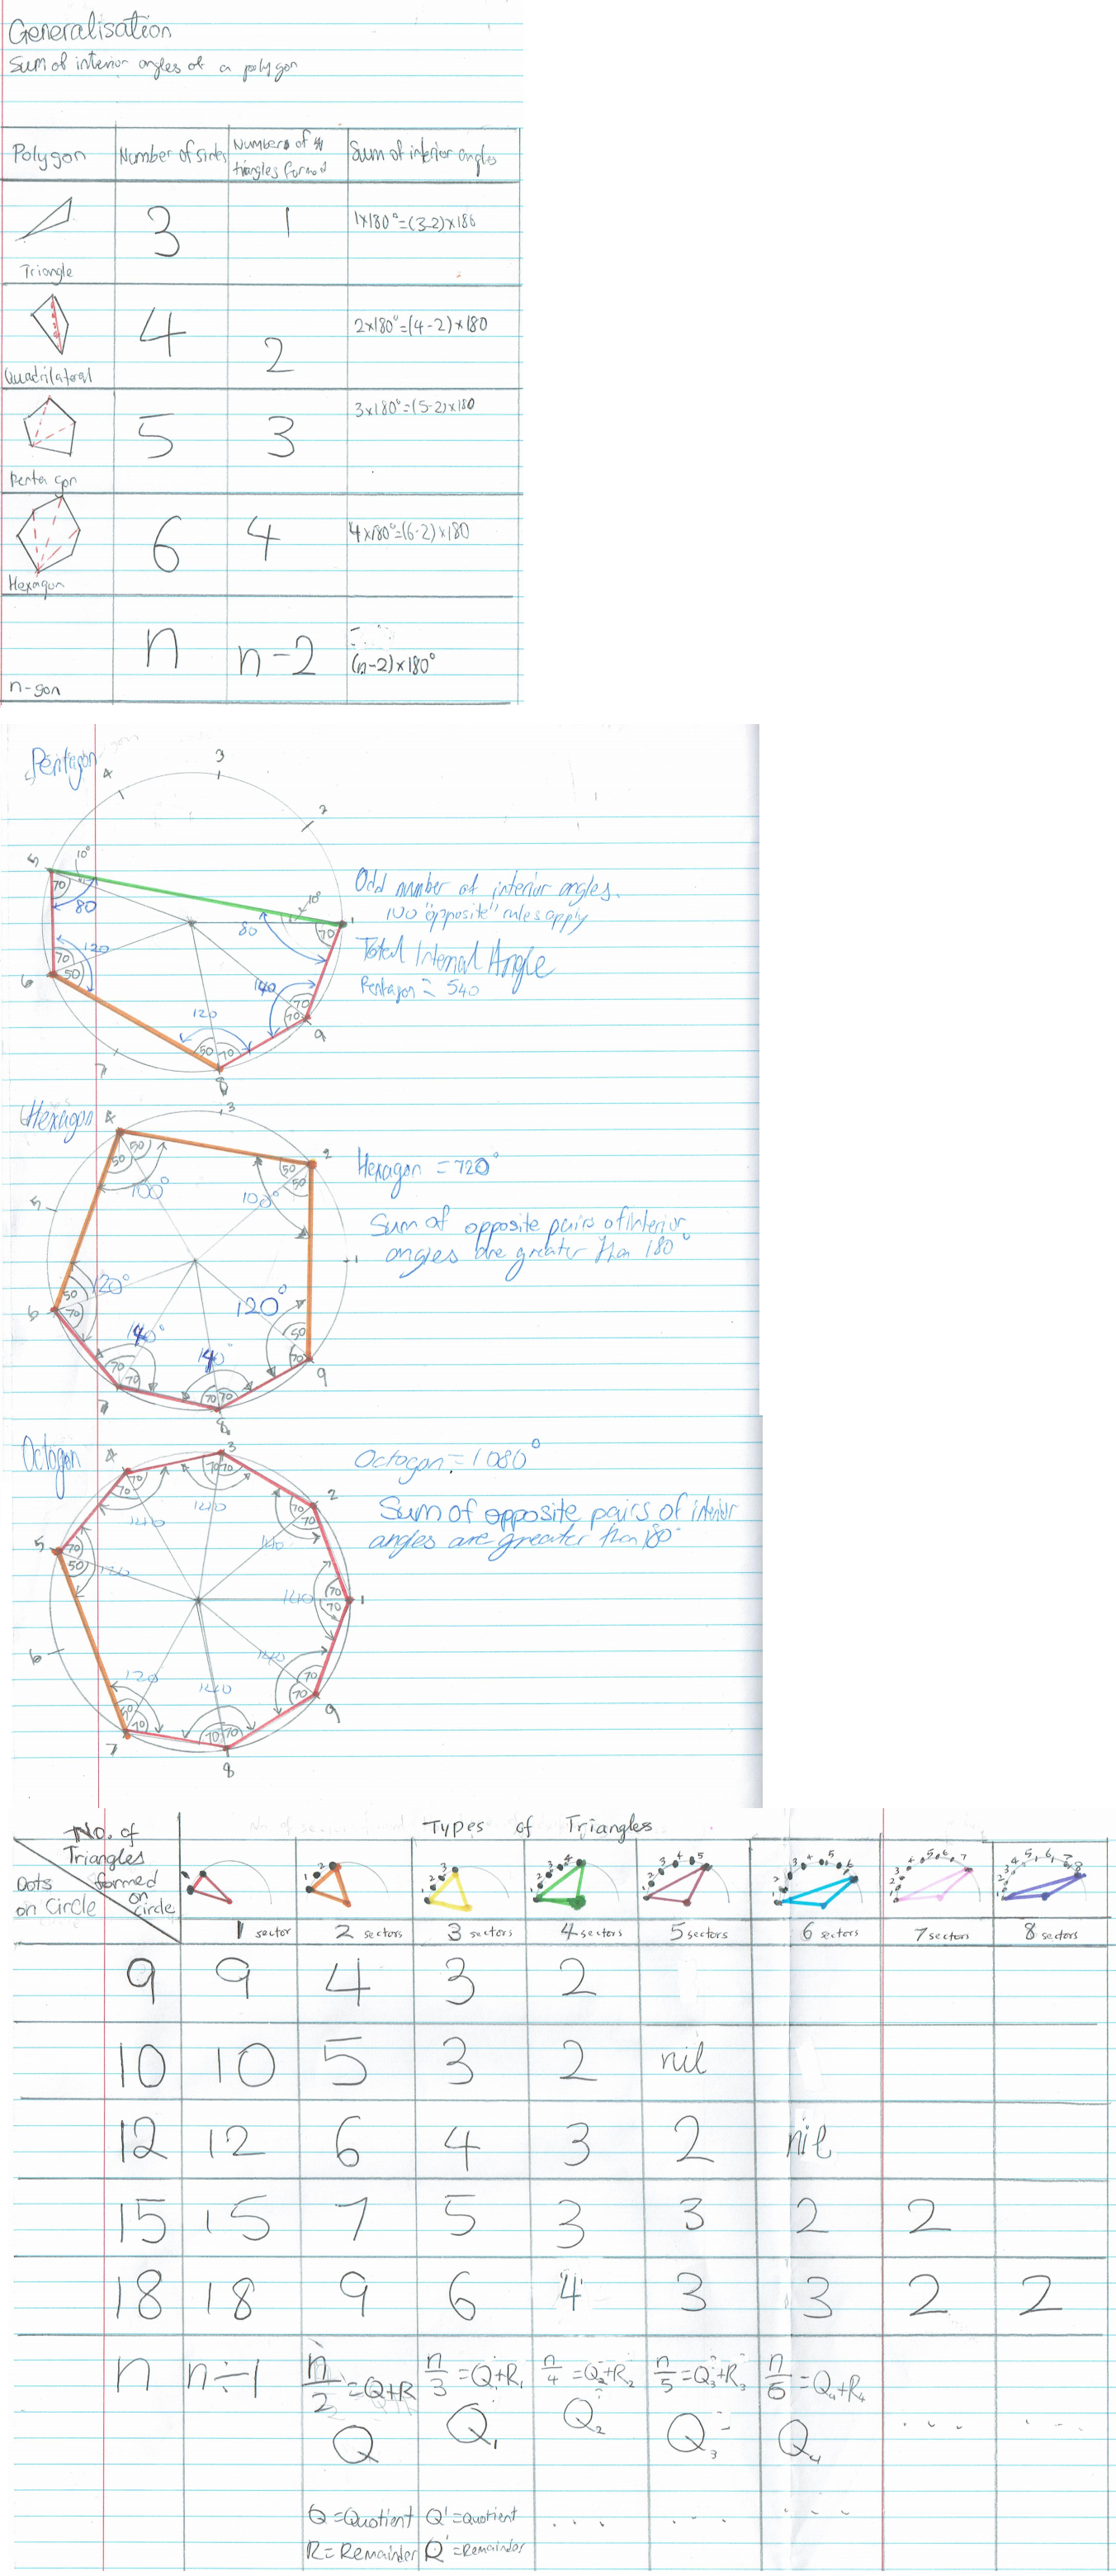 Generalisation
Sum of interior angles of a polygon
Polygon Number of sides Numbers of triangles formed Sum of interior angles
Triangle 3 1 1×180°=(3-2)×180
Quadrilateral 4 2 2×180°=(4-2)×180
Pentagon 5 3 3×180°=(5-2)×180
Hexagon 6 4 4×180°=(6-2)×180
n-gon n n-2 (n-2)×180°
Pentagon
3
4
2
5 10° 70 80
10° 1
80 70
Odd number of interior angles.
"opposite" rules apply
Total Internal Angle
Pentagon = 540
70 120 50 6
140 70 70 9
120 50 70
7
8
Hexagon 4 3
50 50 100°
2 50 50 100°
Hexagon = 720°
Sum of opposite pairs of interior
angles are greater than 180°
5
1
120° 50 70 6
120° 50 70 9
140° 70 70 7
140° 70 70 8
Octogon 4 3
Octogon = 1080°
Sum of opposite pairs of interior
angles are greater than 180°
70 70 140
70 70 140
2 70 70 140
5 70 50 120
140 70 70 1
6
140 70 70 9
120 50 70 7
140 70 70
8
No. of Triangles formed on circle
Dots on Circle
Types of Triangles
1 sector 2 sectors 3 sectors 4 sectors 5 sectors 6 sectors 7 sectors 8 sectors
9 9 4 3 2
10 10 5 3 2 nil
12 12 6 4 3 2 nil
15 15 7 5 3 3 2 2
18 18 9 6 4 3 3 2 2
n n÷1 n/2 =Q+R n/3 =Q₁+R₁ n/4 =Q₂+R₂ n/5 =Q₃+R₃ n/6 =Q₄+R₄
Q Q₁ Q₂ Q₃ Q₄ .... ....
Q=Quotient Q'=quotient .... .... ....
R=Remainder R'=Remainder